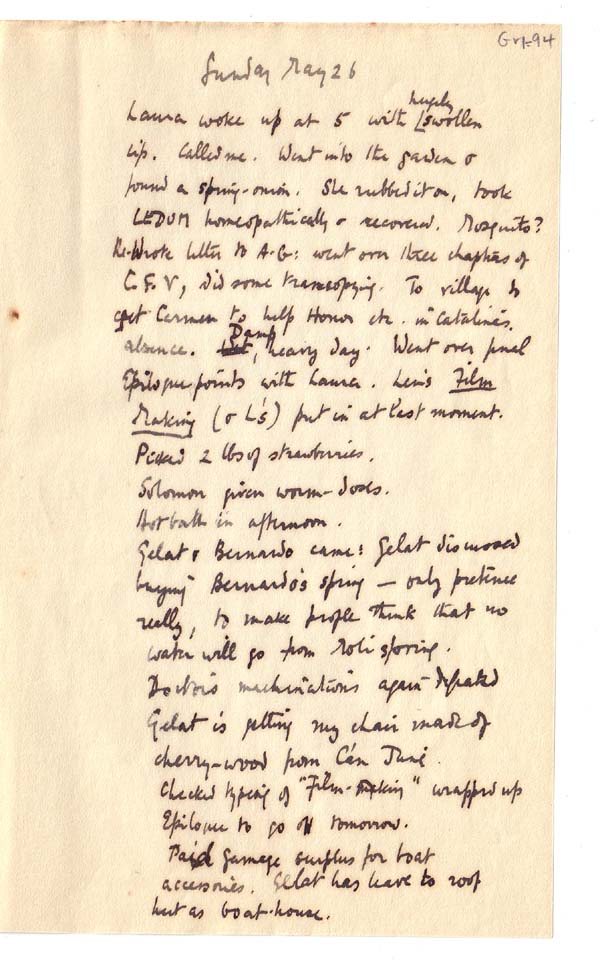 Gry-94
Sunday May 26
Laura woke up at 5 with hugely swollen
lip. Called me. Went into the garden &
found a spring-onion. She rubbed it on, took
LEDUM homeopathically & recovered. Mosquito?
Re-wrote letter to A.G: went over three chapters of
C.F.V, did some transcopying. To village to
get Carmen to help Honor etc. in Catalina's
absence. Damp, heavy day. Went over final
Epilogue points with Laura. Len's Film
Making (& L's) put in at last moment.
Picked 2 lbs of strawberries.
Solomon given worm-doses.
Hot bath in afternoon.
Gelat & Bernardo came: Gelat discussed
buying Bernardo's spring — only pretence
really, to make people think that no
water will go from spring.
Doctor's machinations again defeated
Gelat is getting my chair made of
cherry-wood from Can
Checked typing of "Film-making" wrapped up
Epilogue to go off tomorrow.
Paid Gamage surplus for boat
accessories. Gelat has leave to roof
hut as boat-house.